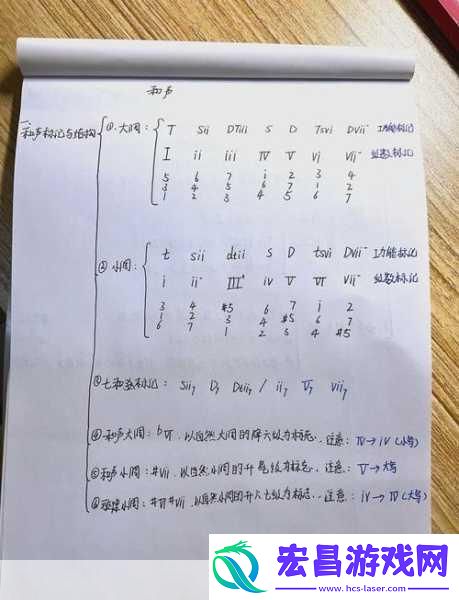 和声
一.和声标记与结构
①大调: T Sii DTiii S D Tsvi Dvii 功能标记
I ii iii IV V vi vii 级数标记
5 6 7 i 2 3 4
3 4 5 6 7 1 2
1 2 3 4 5 6 7
②小调: t sii dtiii s D tsvi Dvii 功能标记
i ii III⁺ iv V VI vii 级数标记
3 4 #5 6 7 i 2
1 2 3 4 #5 6 7
6 7 1 2 3 4 #5
③七和弦标记: Sii₇ D₇ Dtii₇ / ii₇ V₇ vii₇
④和声大调: bVI. 以自然大调的降六级为标志. 注意: IV→iv(小写)
⑤和声小调: #vii. 以自然小调的升七级为标志. 注意: V→大写
⑥旋律小调: #VI #vii. 以自然小调的升六七级为标志. 注意: iv→IV(大写)
宏昌游戏网
www.hcs-laser.com